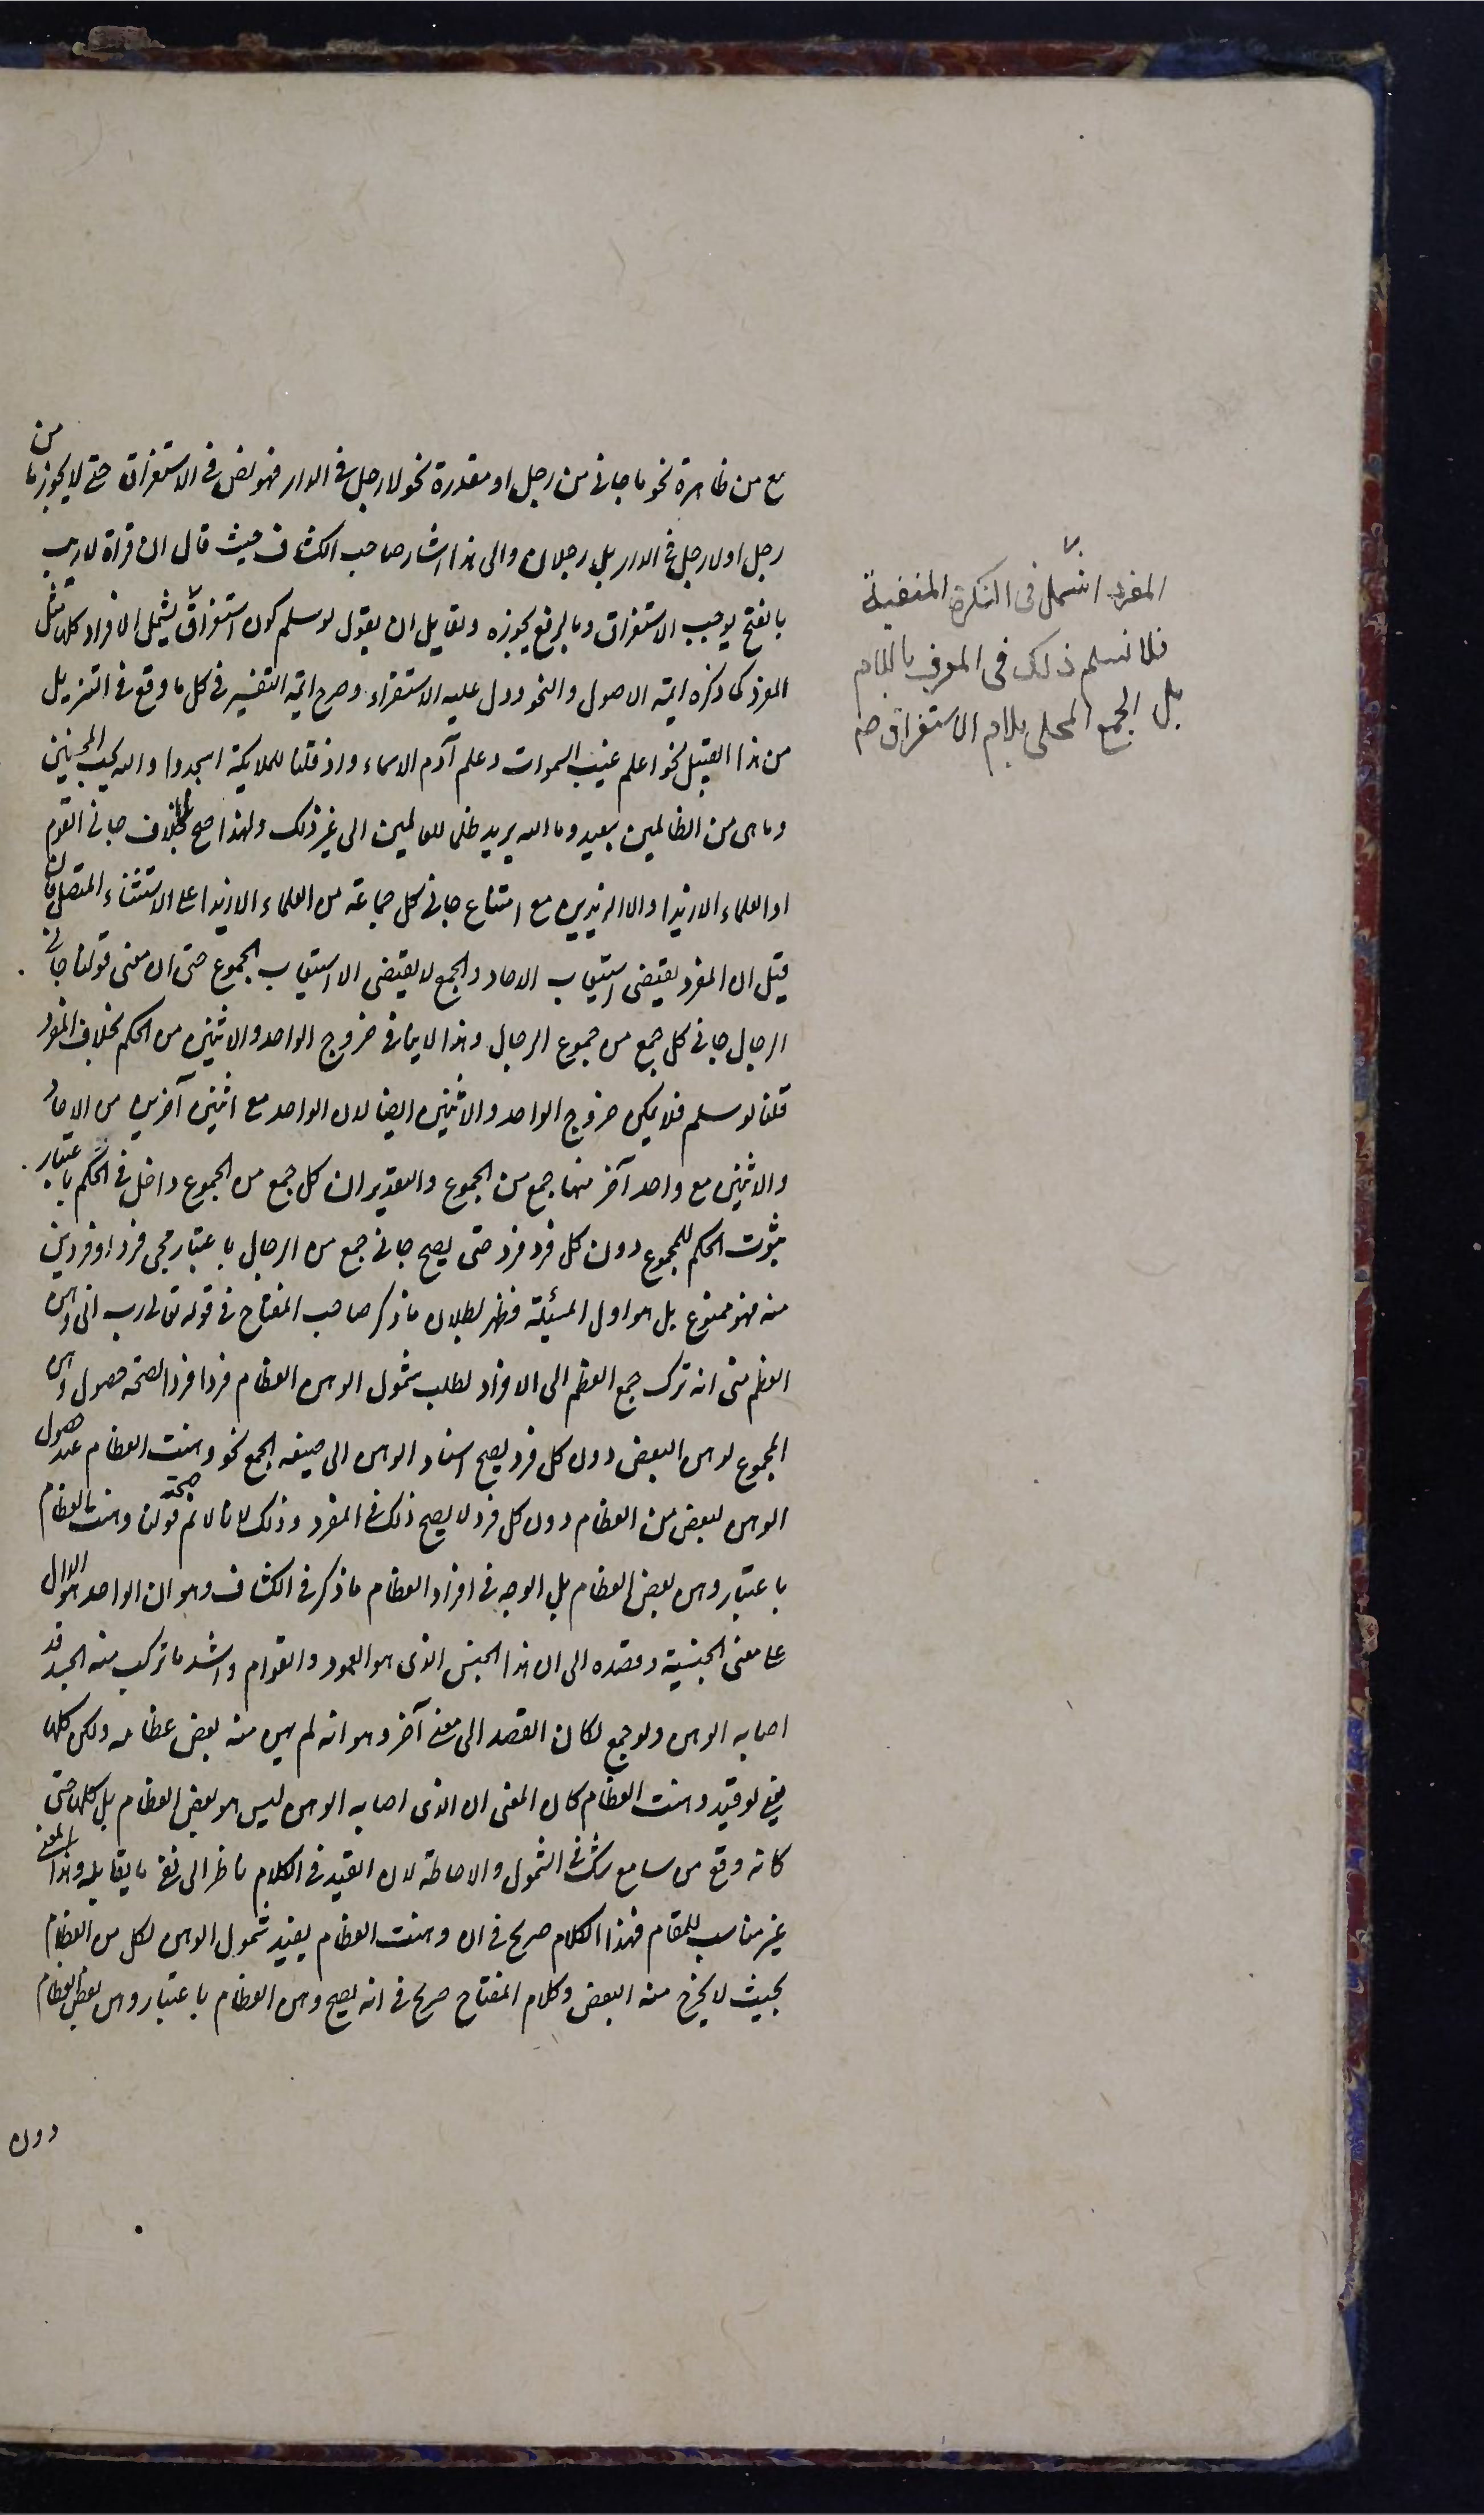 مع من ظاهرة نحو ما جاني من رجل او مقدرة نحو لا رجل في الدار فهو نص في الاستغراق حتى لا يجوز ما من
رجل او لا رجل في الدار بل رجلان والى هذا اشار صاحب الكشاف حيث قال ان قراة لا ريب
بالفتح يوجب الاستغراق وبالرفع يجوزه ولقايل ان يقول لو سلم كون استغراق يشمل الافراد كلها مثل
المفرد كما ذكره ايمة الاصول والنحو ودل عليه الاستقراء وصرح ايمة التفسير في كل ما وقع في التنزيل
من هذا القبيل نحو اعلم غيب السموات وعلم آدم الاسماء واذ قلنا للملايكة اسجدوا والله يحب المحسنين
وما هي من الظالمين ببعيد وما الله يريد ظلما للعالمين الى غير ذلك ولهذا صح بلا خلاف جاني القوم
او العلماء الا زيدا والا الزيدين مع امتناع جاني كل جماعة من العلماء الا زيدا على الاستثناء المتصل فان
قيل ان المفرد يقتضي استيعاب الاحاد والجمع لا يقتضي الا استيعاب الجموع حتى ان معنى قولنا جاني
الرجال جاني كل جمع من جموع الرجال وهذا لا ينافي خروج الواحد والاثنين من الحكم بخلاف المفرد
قلنا لو سلم فلا يمكن خروج الواحد والاثنين ايضا لان الواحد مع اثنين آخرين من الاحاد
والاثنين مع واحد آخر منها جمع من الجموع والتقدير ان كل جمع من الجموع داخل في الحكم باعتبار
ثبوت الحكم للمجموع دون كل فرد فرد حتى يصح جاني جمع من الرجال باعتبار مجي فرد او فردين
منه فهو ممنوع بل هو اول المسئلة فظهر بطلان ما ذكر صاحب المفتاح في قوله تعالى رب اني وهن
العظم مني انه ترك جمع العظم الى الافراد لطلب شمول الوهن العظام فردا فردا لصحة حصول وهن
المجموع لوهن البعض دون كل فرد يصح اسناد الوهن الى صيغه الجمع نحو وهنت العظام عند حصول
الوهن لبعض من العظام دون كل فرد لا يصح ذلك في المفرد وذلك لانا لا نم صحة قولنا وهنت العظام
باعتبار وهن بعض العظام بل الوجه في افراد العظام ما ذكر في الكشاف وهو ان الواحد هو الدال
على معنى الجنسية وقصده الى ان هذا الجنس الذي هو العمود والقوام واشد ما تركب منه الجسد قد
اصابه الوهن ولو جمع لكان القصد الى معنى آخر وهو انه لم يهن منه بعض عظامه ولكن كلها
يعني لو قيل وهنت العظام كان المعنى ان الذي اصابه الوهن ليس هو بعض العظام بل كلها حتى
كانه وقع من سامع شك في الشمول والاحاطة لان القيد في الكلام ناظر الى نفي ما يقابله وهذا المعنى
غير مناسب للمقام فهذا الكلام صريح في ان وهنت العظام يفيد شمول الوهن لكل من العظام
بحيث لا يخرج منه البعض وكلام المفتاح صريح في انه يصح وهن العظام باعتبار وهن بعض العظام
دون
المفرد اشمل في النكرة المنفية
فلا نسلم ذلك في المعرف باللام
بل الجمع المحلى بلام الاستغراق صح